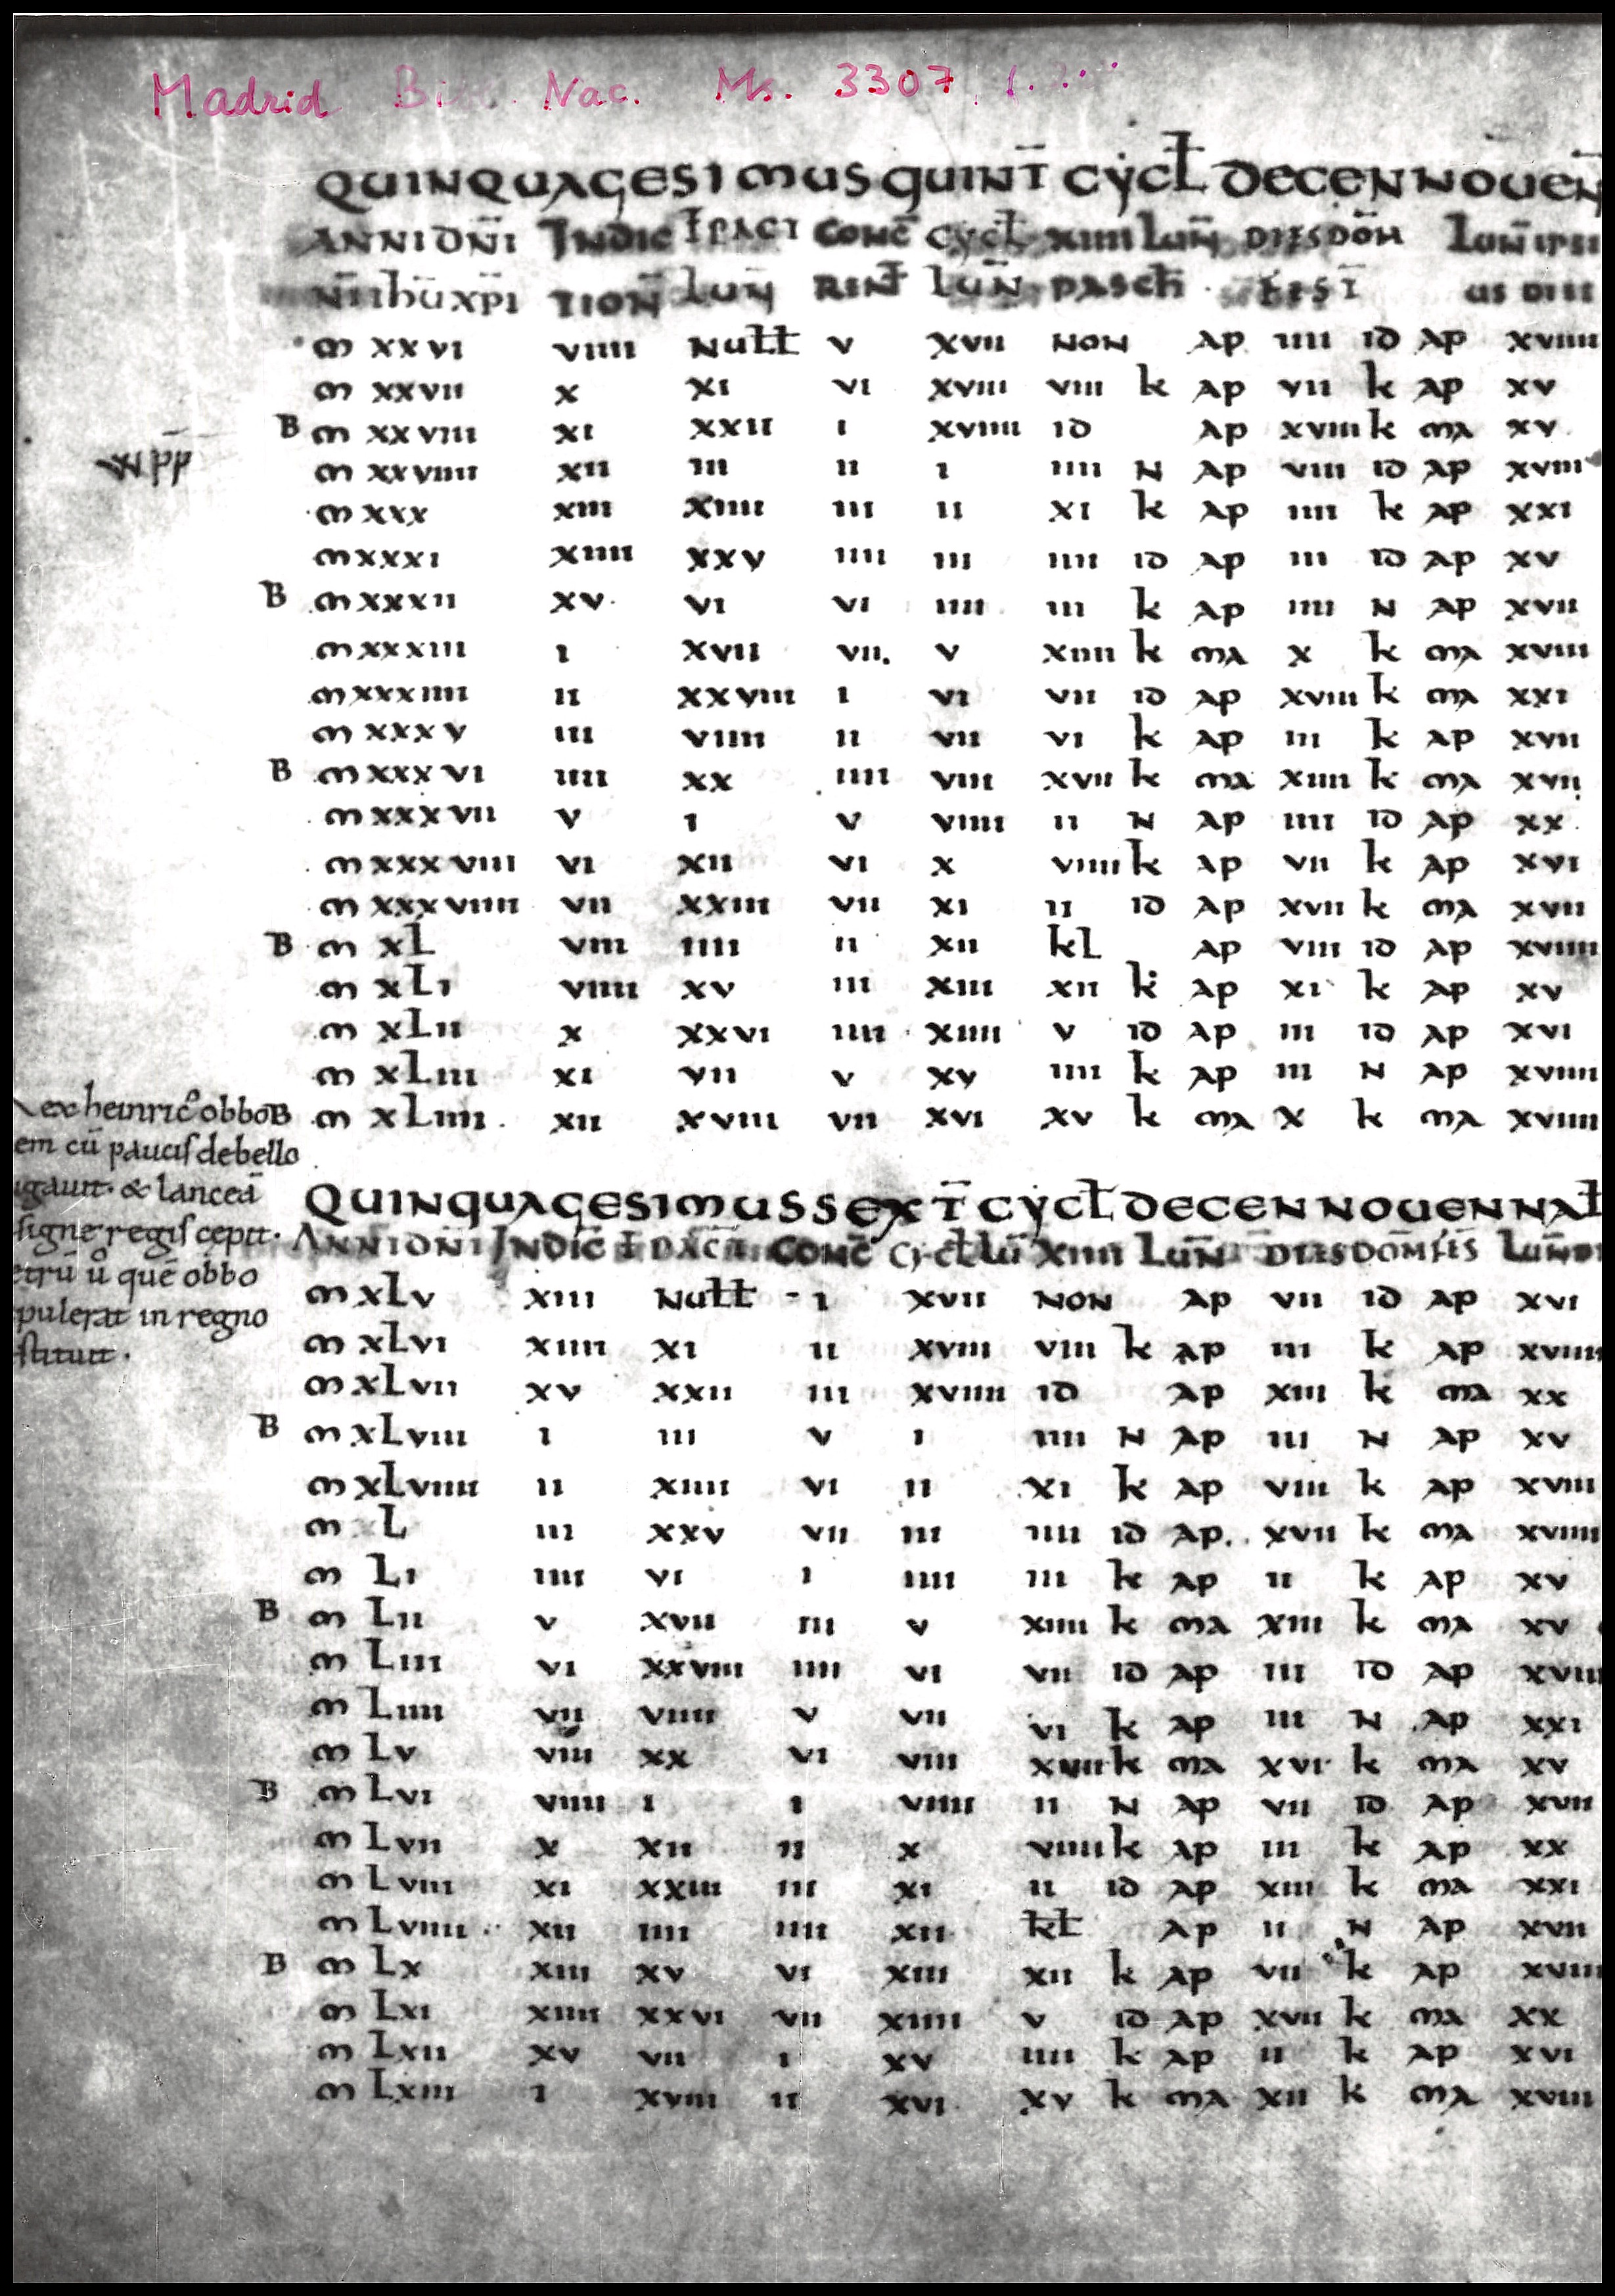 Madrid Nac. Ms. 3307
QUINQUAGESIMUS QUINT̄ CYCŁ DECENNOUEN̄
ANNI DN̄I INDIC EPACT CONC̄ CYCŁ XIIII LUN̄ DIES DOM̄ LUN̄ IPSI
N̄I IHŪ XP̄I TION̄ LUN̄ RENT̄ LUN̄ PASCH̄ FEST̄ US DIEI
M XXVI VIIII NUŁŁ V XVII NON AP IIII ID AP XVIIII
M XXVII X XI VI XVIII VIII K AP VII K AP XV
B M XXVIII XI XXII I XVIIII ID AP XVIII K MA XV
M XXVIIII XII III II I IIII N AP VIII ID AP XVIII
M XXX XIII XIIII III II XI K AP IIII K AP XXI
M XXXI XIIII XXV IIII III IIII ID AP III ID AP XV
B M XXXII XV VI VI IIII III K AP IIII N AP XVII
M XXXIII I XVII VII. V XIIII K MA X K MA XVIII
M XXXIIII II XXVIII I VI VII ID AP XVIII K MA XXI
M XXXV III VIIII II VII VI K AP III K AP XVII
B M XXXVI IIII XX IIII VIII XVII K MA XIIII K MA XVII
M XXXVII V I V VIIII II N AP IIII ID AP XX
M XXXVIII VI XII VI X VIIII K AP VII K AP XVI
M XXXVIIII VII XXIII VII XI II ID AP XVII K MA XVII
B M XL VIII IIII II XII KL AP VIII ID AP XVIIII
M XLI VIIII XV III XIII XII K AP XI K AP XV
M XLII X XXVI IIII XIIII V ID AP III ID AP XVI
M XLIII XI VII V XV IIII K AP III N AP XVIIII
B M XLIIII XII XVIII VII XVI XV K MA X K MA XVIIII
ex heinric obbo
em cū paucis debello
igauit. & lanceā
signe regis cepit.
etrū ů quē obbo
pulerat in regno
stituit.
QUINQUAGESIMUS SEXT̄ CYCŁ DECENNOUENNAŁ
ANNI DN̄I INDIC̄ EPACT CONC̄ CYCŁ LŪ XIIII LUN̄ DIES DOM̄ FES LUN̄ DI
M XLV XIII NUŁŁ I XVII NON AP VII ID AP XVI
M XLVI XIIII XI II XVIII VIII K AP III K AP XVIIII
M XLVII XV XXII III XVIIII ID AP XIII K MA XX
B M XLVIII I III V I IIII N AP III N AP XV
M XLVIIII II XIIII VI II XI K AP VIII K AP XVIII
M L III XXV VII III IIII ID AP. XVII K MA XVIIII
M LI IIII VI I IIII III K AP II K AP XV
B M LII V XVII III V XIIII K MA XIII K MA XV
M LIII VI XXVIII IIII VI VII ID AP III ID AP XVIII
M LIIII VII VIIII V VII VI K AP III N AP XXI
M LV VIII XX VI VIII XVII K MA XVI K MA XV
B M LVI VIIII I I VIIII II N AP VII ID AP XVII
M LVII X XII II X VIIII K AP III K AP XX
M LVIII XI XXIII III XI II ID AP XIII K MA XXI
M LVIIII XII IIII IIII XII KŁ AP II N AP XVII
B M LX XIII XV VI XIII XII K AP VII K AP XVIII
M LXI XIIII XXVI VII XIIII V ID AP XVII K MA XX
M LXII XV VII I XV IIII K AP II K AP XVI
M LXIII I XVIII II XVI XV K MA XII K MA XVIII